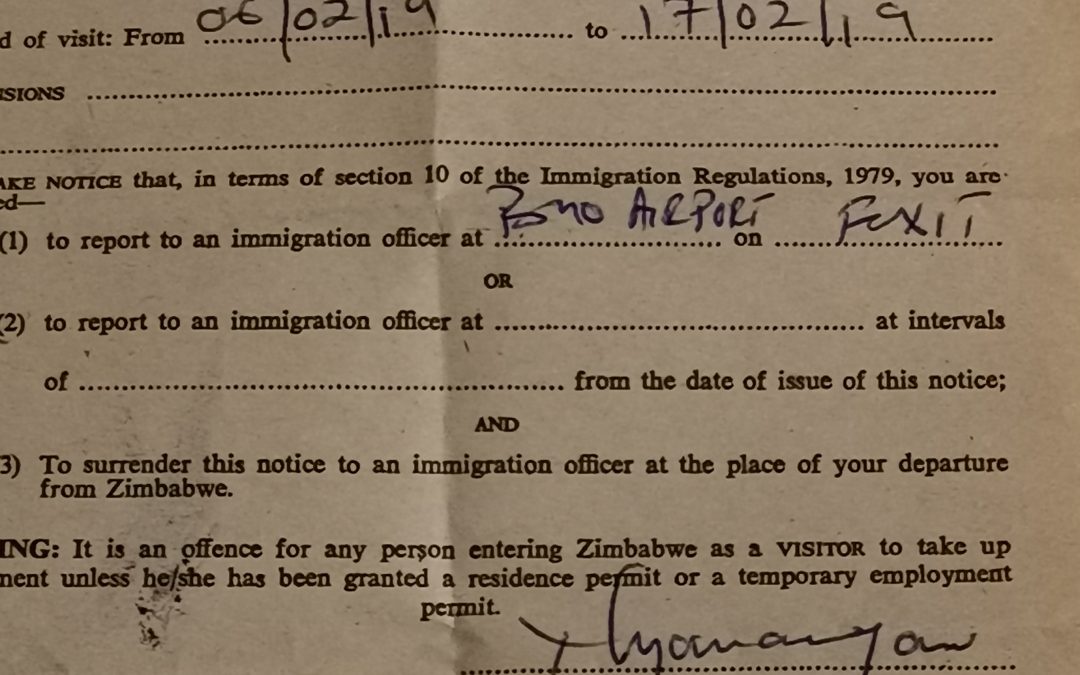 d of visit: From 06/02/19 to 17/02/19
ISIONS
AKE NOTICE that, in terms of section 10 of the Immigration Regulations, 1979, you are
ed—
(1) to report to an immigration officer at AIRPORT on EXIT
OR
(2) to report to an immigration officer at at intervals
of from the date of issue of this notice;
AND
3) To surrender this notice to an immigration officer at the place of your departure
from Zimbabwe.
ING: It is an offence for any person entering Zimbabwe as a VISITOR to take up
ment unless he/she has been granted a residence permit or a temporary employment
permit.